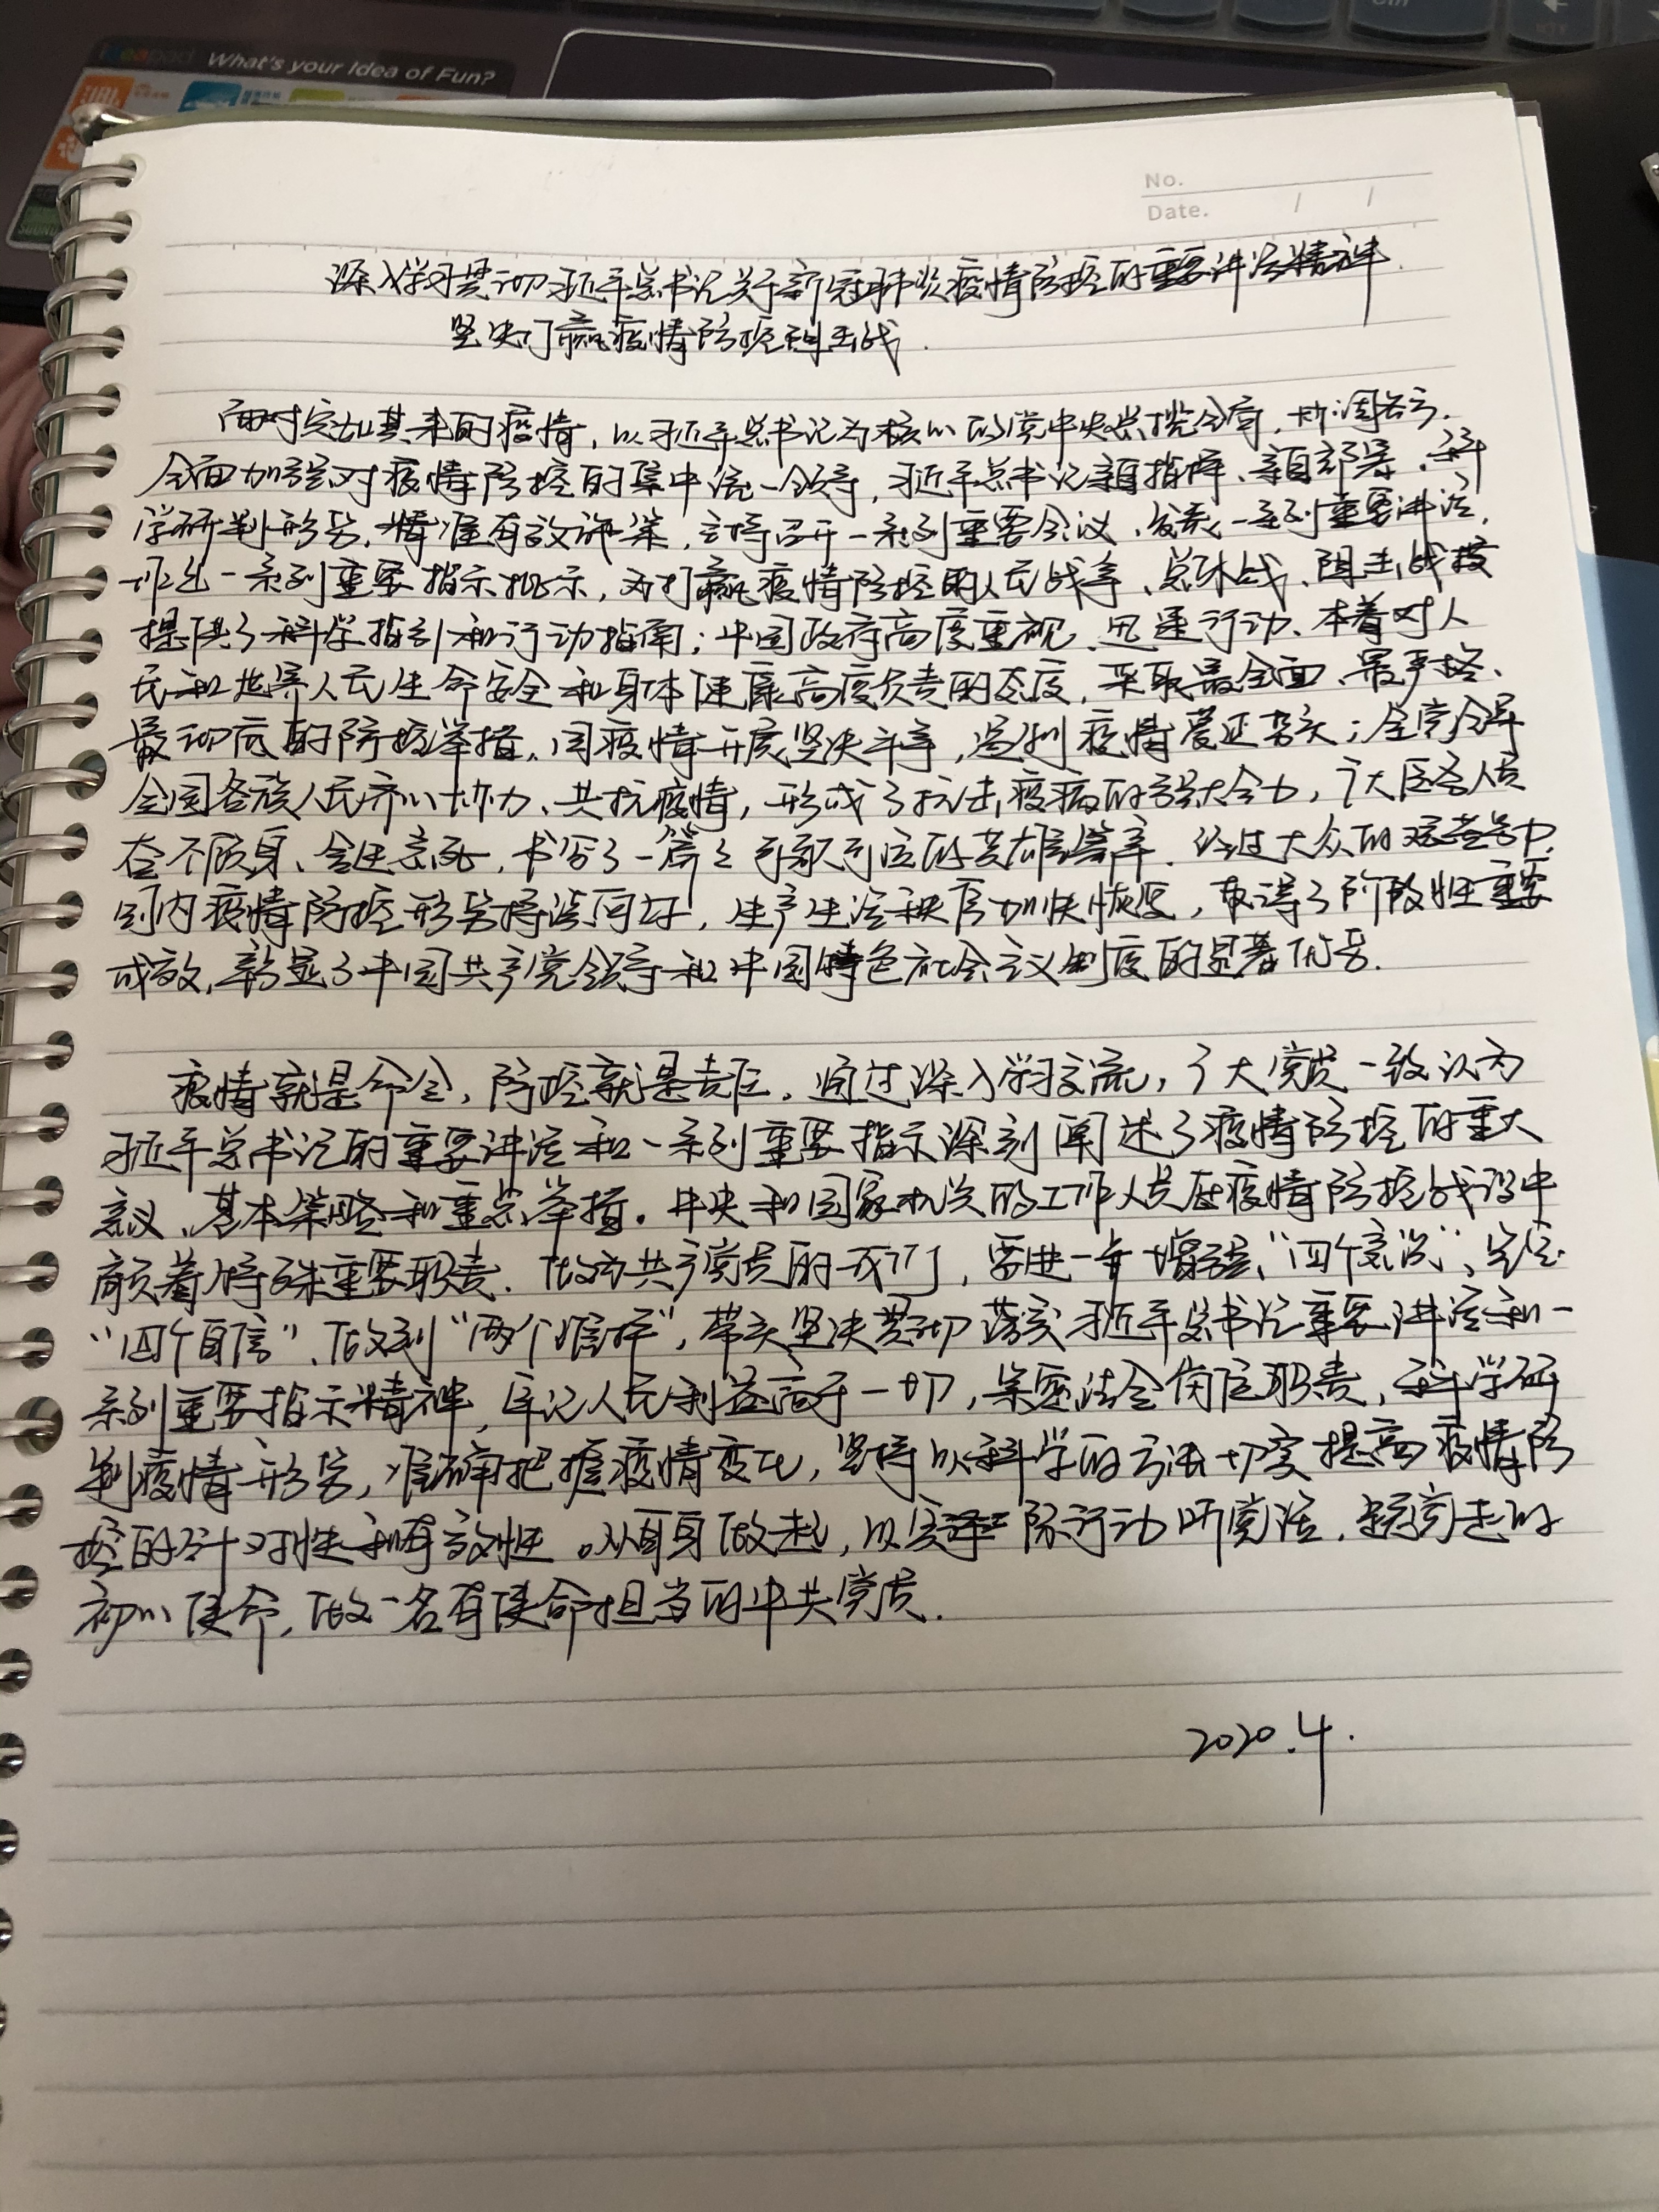 ideapad What's your Idea of Fun?
JBL
No.
Date. / /
深入学习贯彻习近平总书记关于新冠肺炎疫情防控的重要讲话精神
坚决打赢疫情防控阻击战.
面对突如其来的疫情,以习近平总书记为核心的党中央总揽全局,协调各方.
全面加强对疫情防控的集中统一领导,习近平总书记亲自指挥、亲自部署、科
学研判形势、精准有效施策,主持召开一系列重要会议、发表一系列重要讲话,
作出一系列重要指示批示,为打赢疫情防控的人民战争、总体战、阻击战
提供了科学指引和行动指南;中国政府高度重视、迅速行动、本着对人
民和世界人民生命安全和身体健康高度负责的态度,采取最全面、最严格、
最彻底的防控举措,同疫情开展坚决斗争,遏制疫情蔓延势头;全党全军
全国各族人民齐心协力、共抗疫情,形成了抗击疫病的强大合力,广大医务人员
奋不顾身、舍生忘死,书写了一篇篇可歌可泣的英雄篇章.经过大众的艰苦努力,
国内疫情防控形势持续向好,生产生活秩序加快恢复,取得了阶段性重要
成效,彰显了中国共产党领导和中国特色社会主义制度的显著优势.
疫情就是命令,防控就是责任.通过深入学习交流,广大党员一致认为
习近平总书记的重要讲话和一系列重要指示深刻阐述了疫情防控的重大
意义、基本策略和重点举措.中央和国家机关的工作人员在疫情防控战役中
肩负着特殊重要职责.做为共产党员的我们,要进一步增强“四个意识”、坚定
“四个自信”、做到“两个维护”,带头坚决贯彻落实习近平总书记重要讲话和一
系列重要指示精神,牢记人民利益高于一切,紧密结合岗位职责,科学研
判疫情形势,准确把握疫情变化,坚持以科学的方法切实提高疫情防
控的针对性和有效性。从自身做起,以实际行动听党话,跟党走的
初心使命,做一名有使命担当的中共党员.
2020.4.